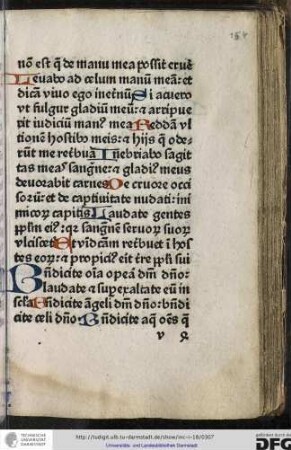 154
nō est q̄ de manu mea possit eruēˀ
Leuabo ad celum manū meā: et
dicā viuo ego inetnūSi acuero
vt fulgur gladiū meū: ⁊ arripue
rit iudiciū manꝰ mea Reddā vl
tionē hostibꝰ meis: ⁊ hijs q̄ ode⸗
rūt me ret̄buā Inebriabo sagit
tas measˀ sanguīe: ⁊ gladiꝰ meus
deuorabit carnes De cruore occi
soꝝ: et de captiuitate nudati: ini
micoꝝ capitis Laudate gentes
pp̄l̄m eiꝰ: qꝛ sanguīe̅ seruoꝝ suoꝝ
vlciscet̄ Et vīdc̄am ret̄buet ī hos
tes eoꝝ: ⁊ propiciꝰ eit t̄re pp̄l̄i sui
Bn̄dicite oīa opera dm̄ dn̄o:
laudate ⁊ suꝑexaltate eū in
sc̄l̄a Bn̄dicite āgeli dn̄i dn̄o: bn̄di
cite celi dn̄o Bn̄dicite aq̄ oēs q̄
v
http://tudigit.ulb.tu-darmstadt.de/show/inc-iv-18/0307
Universitäts- und Landesbibliothek Darmstadt
TECHNISCHE
UNIVERSITÄT
DARMSTADT
gefördert durch die
DFG